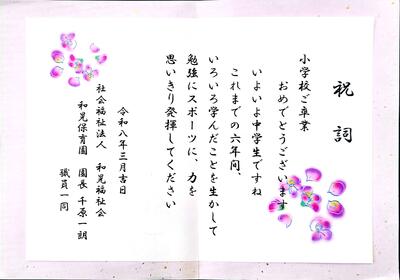 祝詞
小学校ご卒業
おめでとうございます
いよいよ中学生ですね
これまでの六年間、
いろいろ学んだことを生かして
勉強にスポーツに、力を
思いきり発揮してください
令和八年三月吉日
社会福祉法人 和晃福祉会
和晃保育園 園長 千原一朗
職員一同